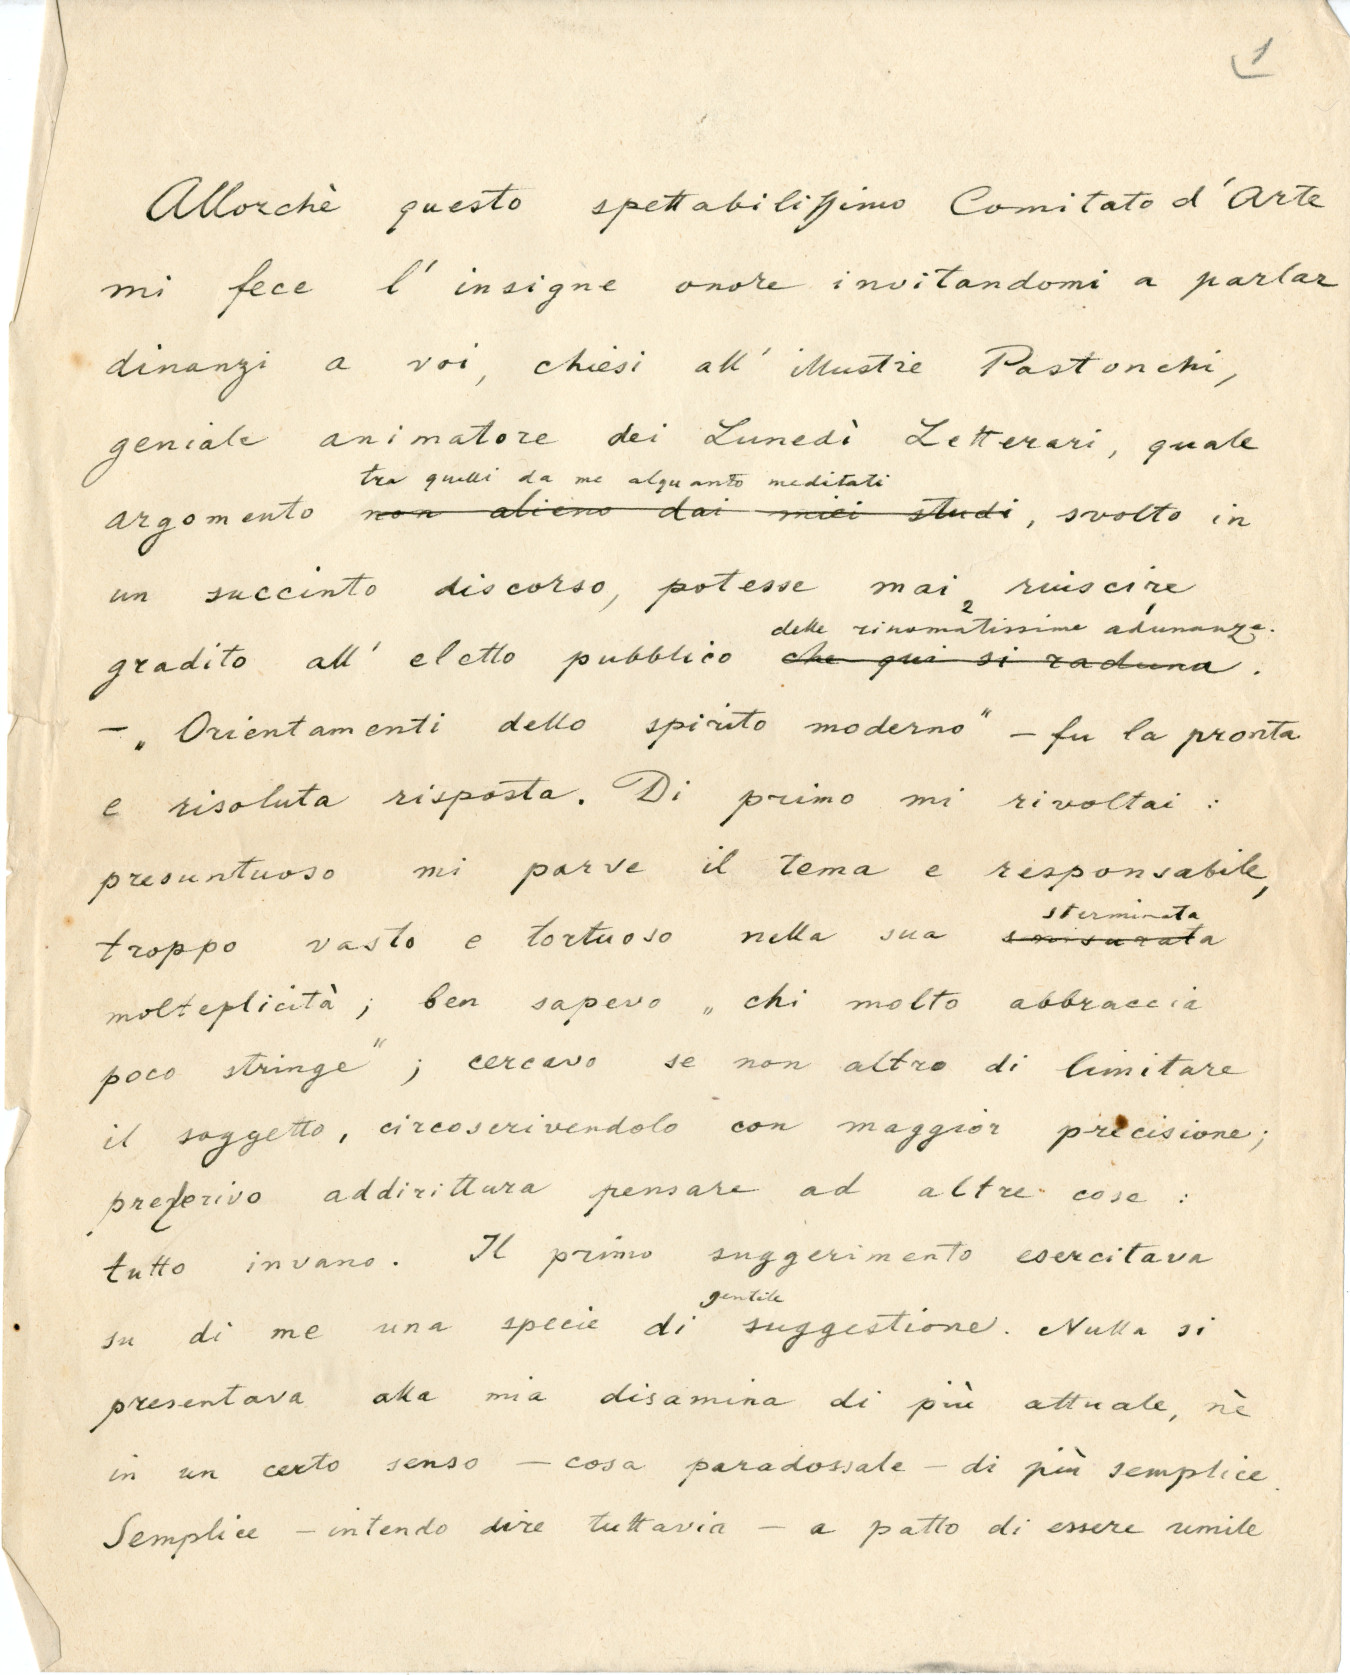 1
Allorchè questo spettabilissimo Comitato d'Arte
mi fece l'insigne onore invitandomi a parlar
dinanzi a voi, chiesi all'illustre Pastonchi,
geniale animatore dei Lunedì Letterari, quale
tra quelli da me alquanto meditati
argomento non alieno dai miei studi, svolto in
un succinto discorso, potesse mai riuscire
2
delle rinomatissime adunanze.
gradito all'eletto pubblico che qui si raduna.
– „Orientamenti dello spirito moderno" – fu la pronta
e risoluta risposta. Di primo mi rivoltai :
presuntuoso mi parve il tema e responsabile,
sterminata
troppo vasto e tortuoso nella sua smisurata
molteplicità ; ben sapevo „chi molto abbraccia
poco stringe" ; cercavo se non altro di limitare
il soggetto, circoscrivendolo con maggior precisione;
preferivo addirittura pensare ad altre cose :
tutto invano. Il primo suggerimento esercitava
gentile
su di me una specie di suggestione. Nulla si
presentava alla mia disamina di più attuale, nè
in un certo senso – cosa paradossale – di più semplice.
Semplice – intendo dire tuttavia – a patto di essere umile